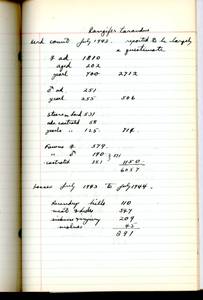 Rangifer tarandus
Herd count July 1943. reported to be largely
a guesstimate
♀ ad. 1810
aged 202
yearl 700 2712
♂ ad 251
yearl 255 506
Steers on sled 531
ads castrated 58
yearls " 125 714
Fawns ♀ 579
" ♂ 190
castrated 351 1150
6057
Losses July 1943 to July 1944.
110
meat & hides 347
sickness injury 209
wolves
891